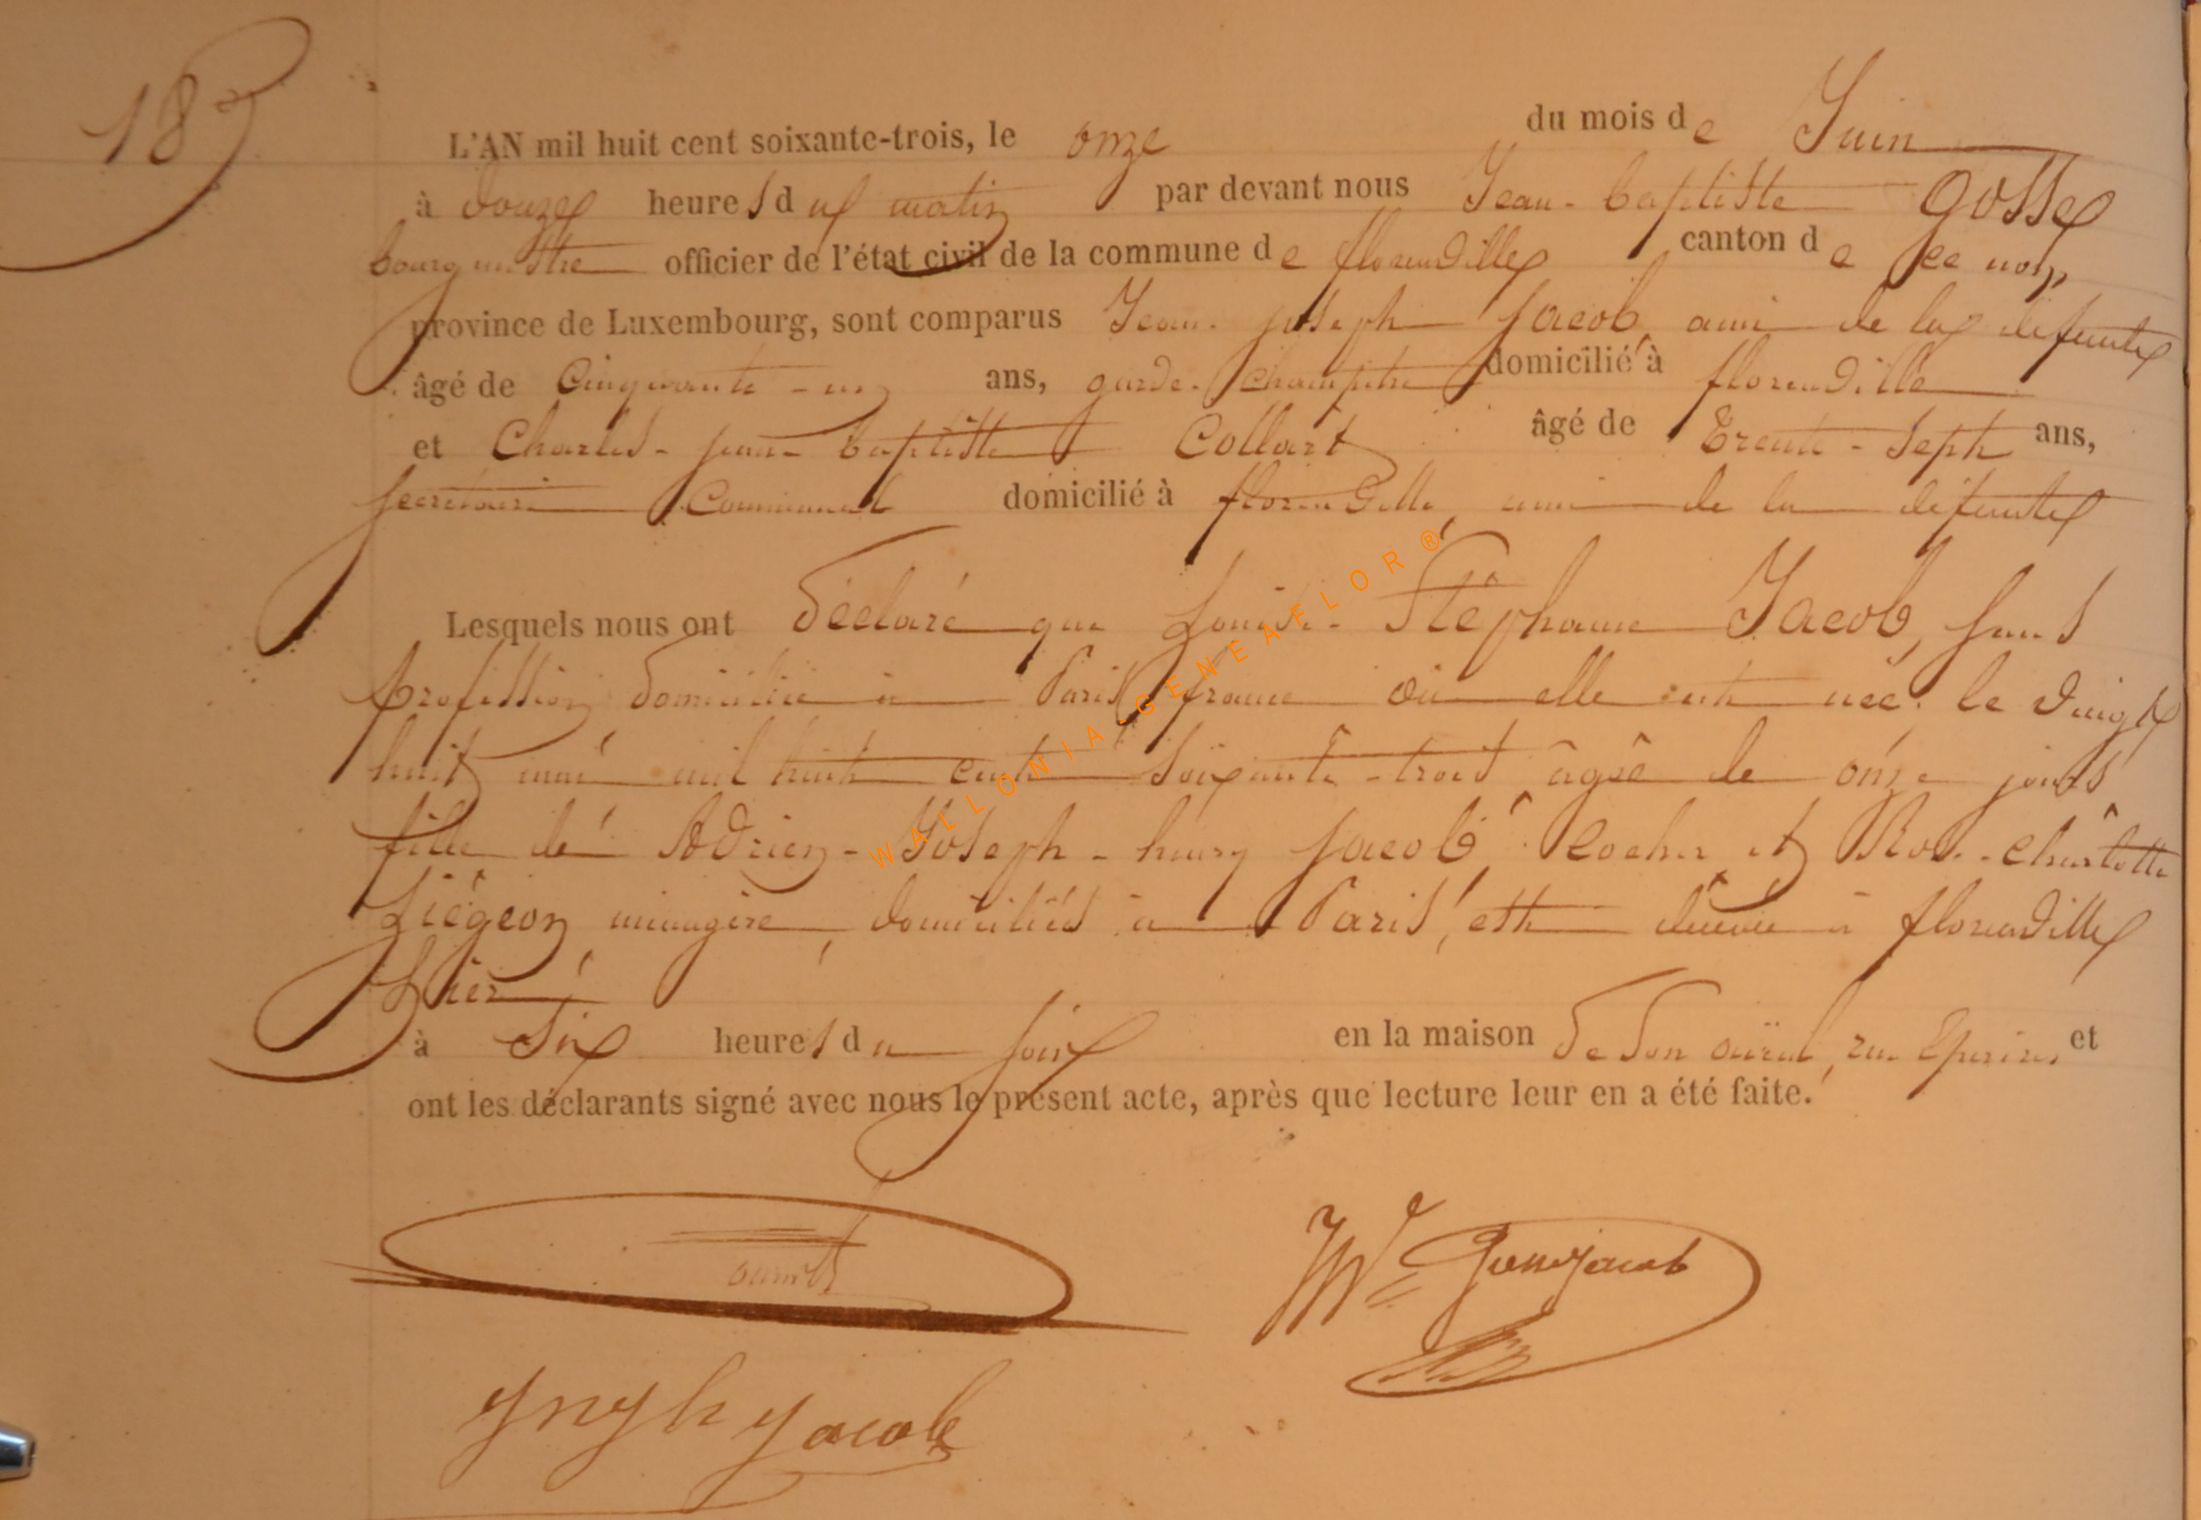 18
L'AN mil huit cent soixante-trois, le onze du mois de Juin
à douze heures du matin par devant nous Jean-baptiste Gosse
bourgmestre officier de l'état civil de la commune de florenville canton de
province de Luxembourg, sont comparus Jean-joseph Jacob, ami de la défunte
âgé de Cinquante-un ans, garde-Champêtre domicilié à florenville
et Charles-jean-baptiste Collart âgé de Trente-Sept ans,
secrétaire Communal domicilié à florenville, ami de la défunte
Lesquels nous ont déclaré que Louise-Stéphanie Jacob, sans
profession, domiciliée à Paris, france où elle est née le vingt
huit mai mil huit cent soixante-trois âgée de onze jours
fille de Adrien-Joseph-henry Jacob, Cocher et Rose-Charlotte
Liégeon, ménagère, domiciliés à Paris, est décédée à florenville
Hier
à Six heures du soir en la maison de son, rue et
ont les déclarants signé avec nous le présent acte, après que lecture leur en a été faite.
Jacob
WALLONIA-GENEAFLOR®